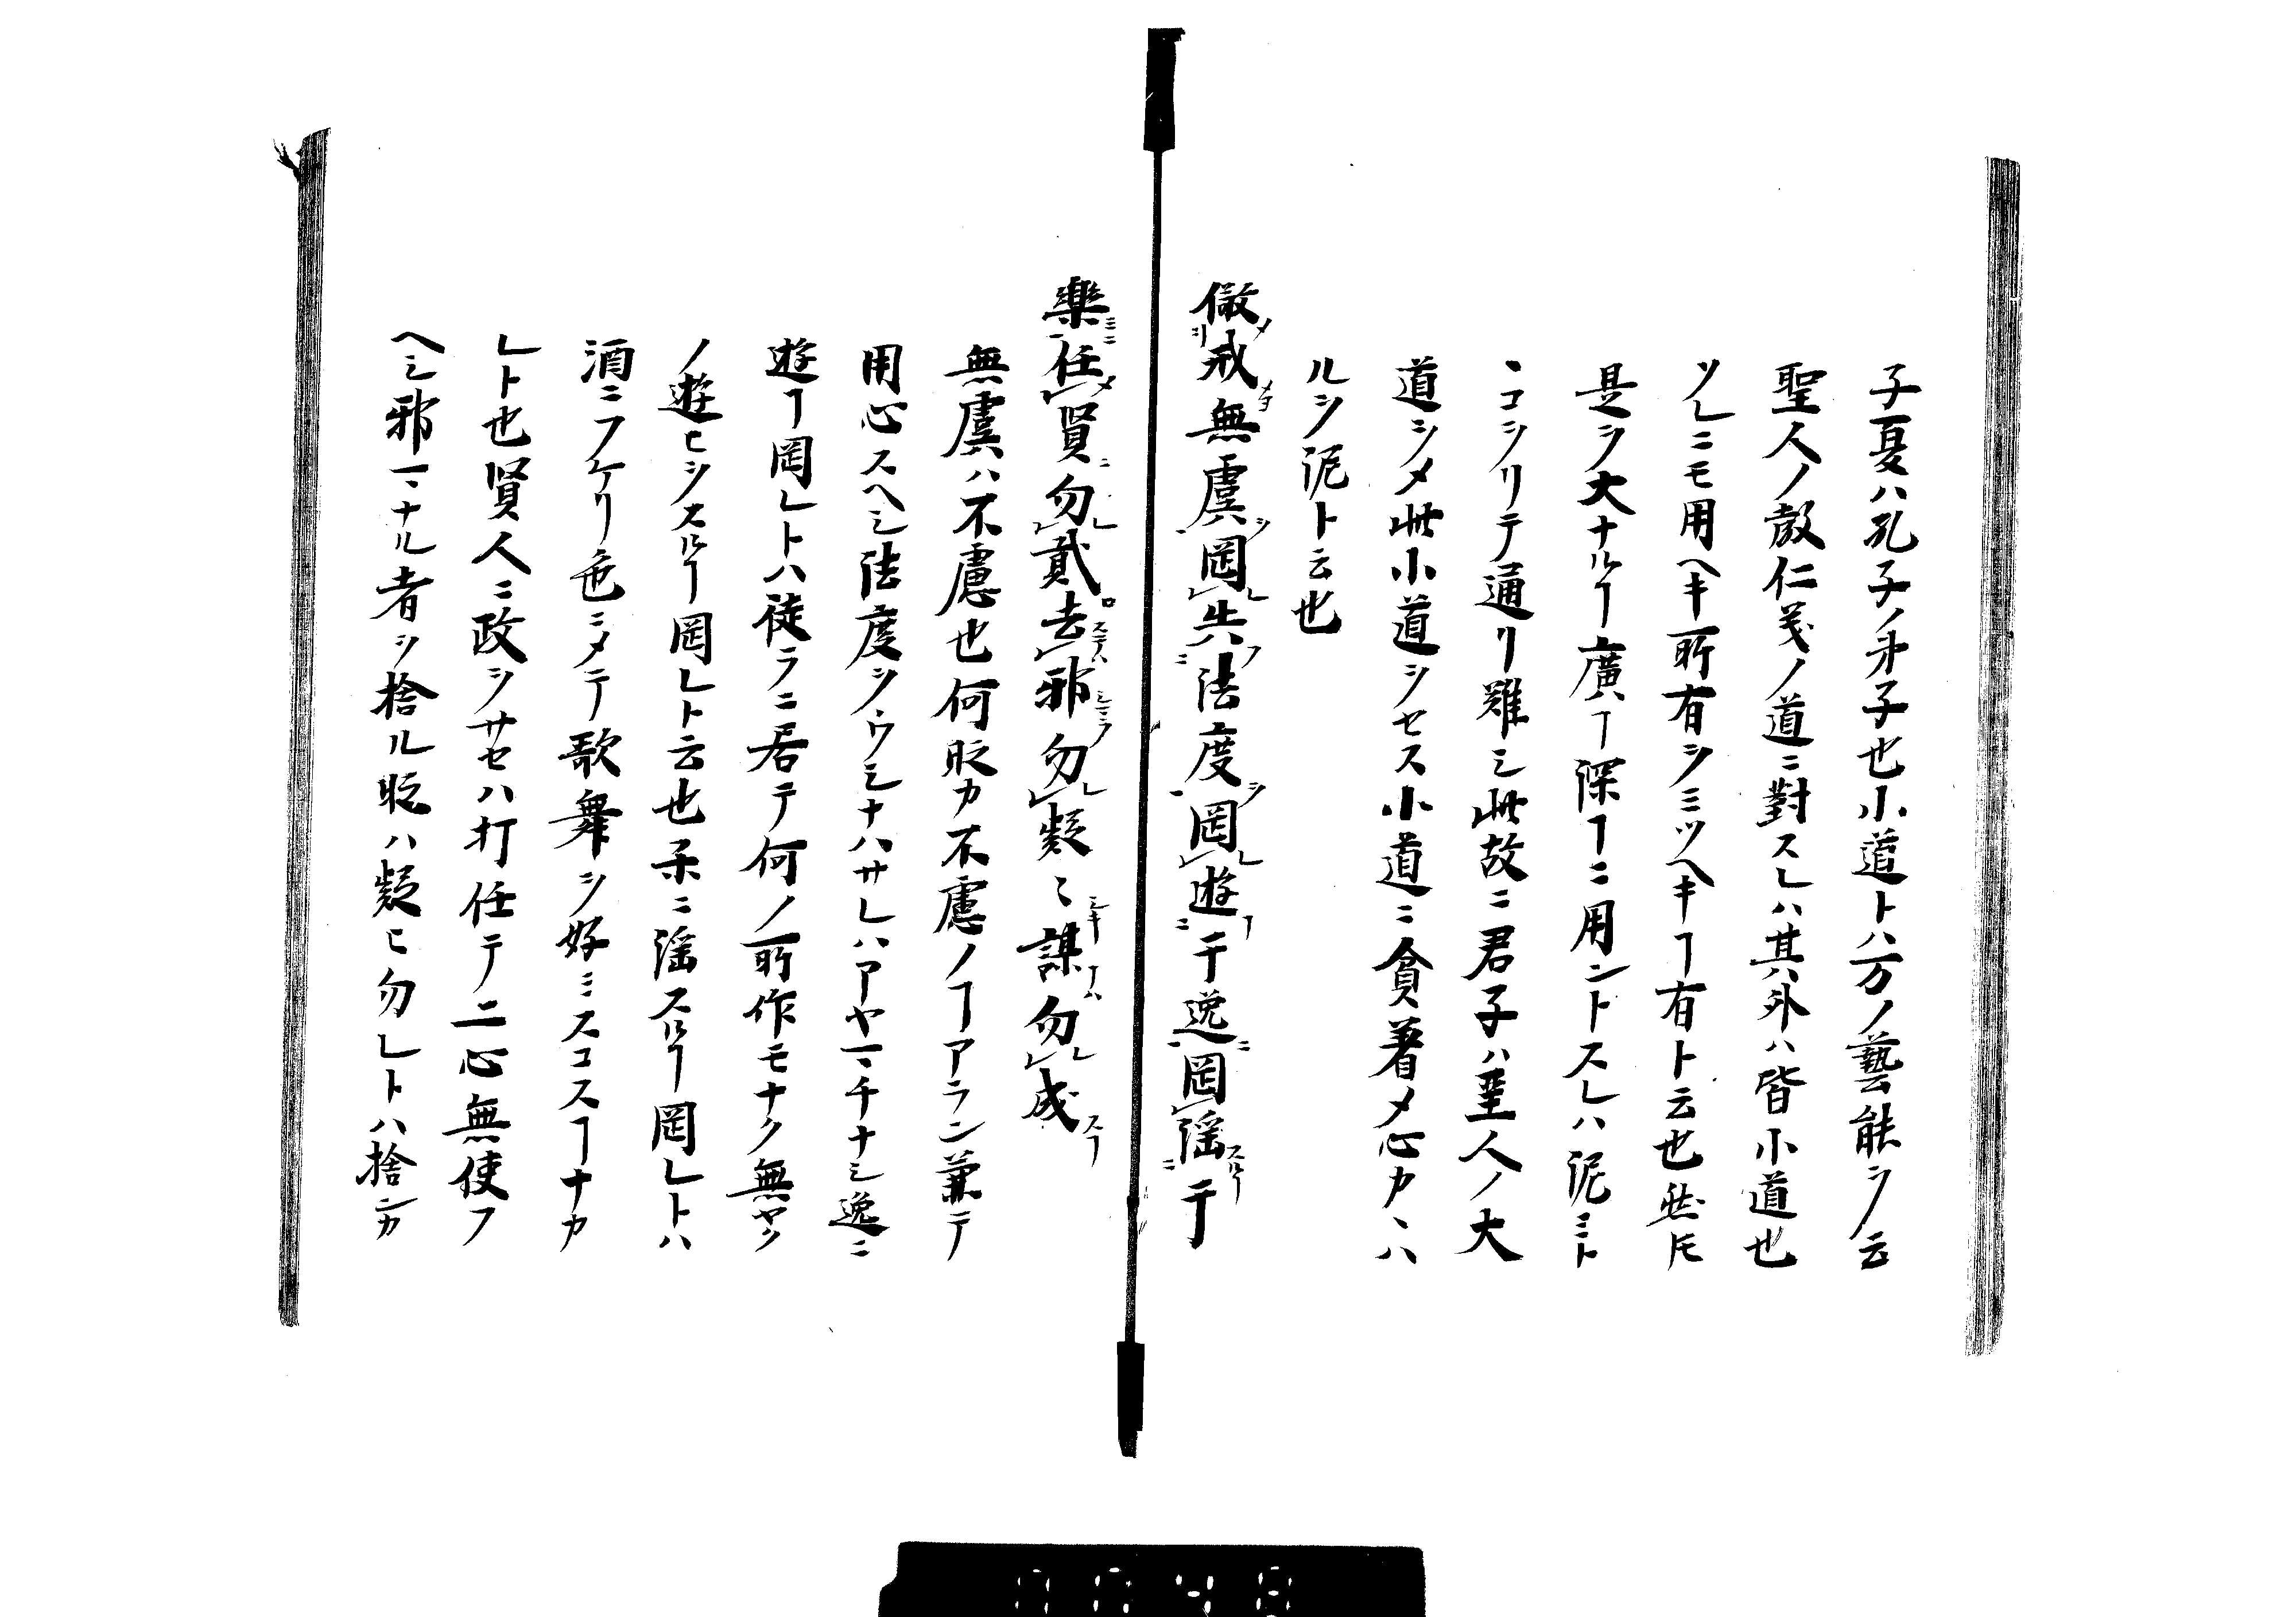 子夏ハ孔子ノ弟子也小道トハ万ノ藝能ヲ云
聖人ノ教仁義ノ道ニ對スレハ其外ハ皆小道也
ソレニモ用ヘキ所有シミツヘキヿ有ト云也然𪜈
是ヲ大ナルヿ廣ヿ深ヿニ用ントスレハ泥ミト
ヽコヲリテ通リ難シ此故ニ君子ハ聖人ノ大
道ヲシメ此小道ヲセス小道ニ貪著メ心カヽハ
ルヲ泥ト云也
儆戒無虞罔失法度罔遊于逸罔滛于
樂任賢勿貳去邪勿疑〻謀勿成
無虞ハ不慮也何時カ不慮ノヿアラン兼テ
用心スヘシ法度ヲウシナハサレハアヤマチナシ逸ニ
遊ヿ罔レトハ徒ラニ居テ何ノ所作モナク無ヤク
ノ遊ヒヲスルヿ罔レト云也楽ニ滛スルヿ罔レトハ
酒ニフケリ色ニメテ歌舞ヲ好ミスコスヿナカ
レト也賢人ニ政ヲサセハ打任テ二心無使フ
ヘシ邪マナル者ヲ捨ル時ハ疑ヒ勿レトハ捨ンカ